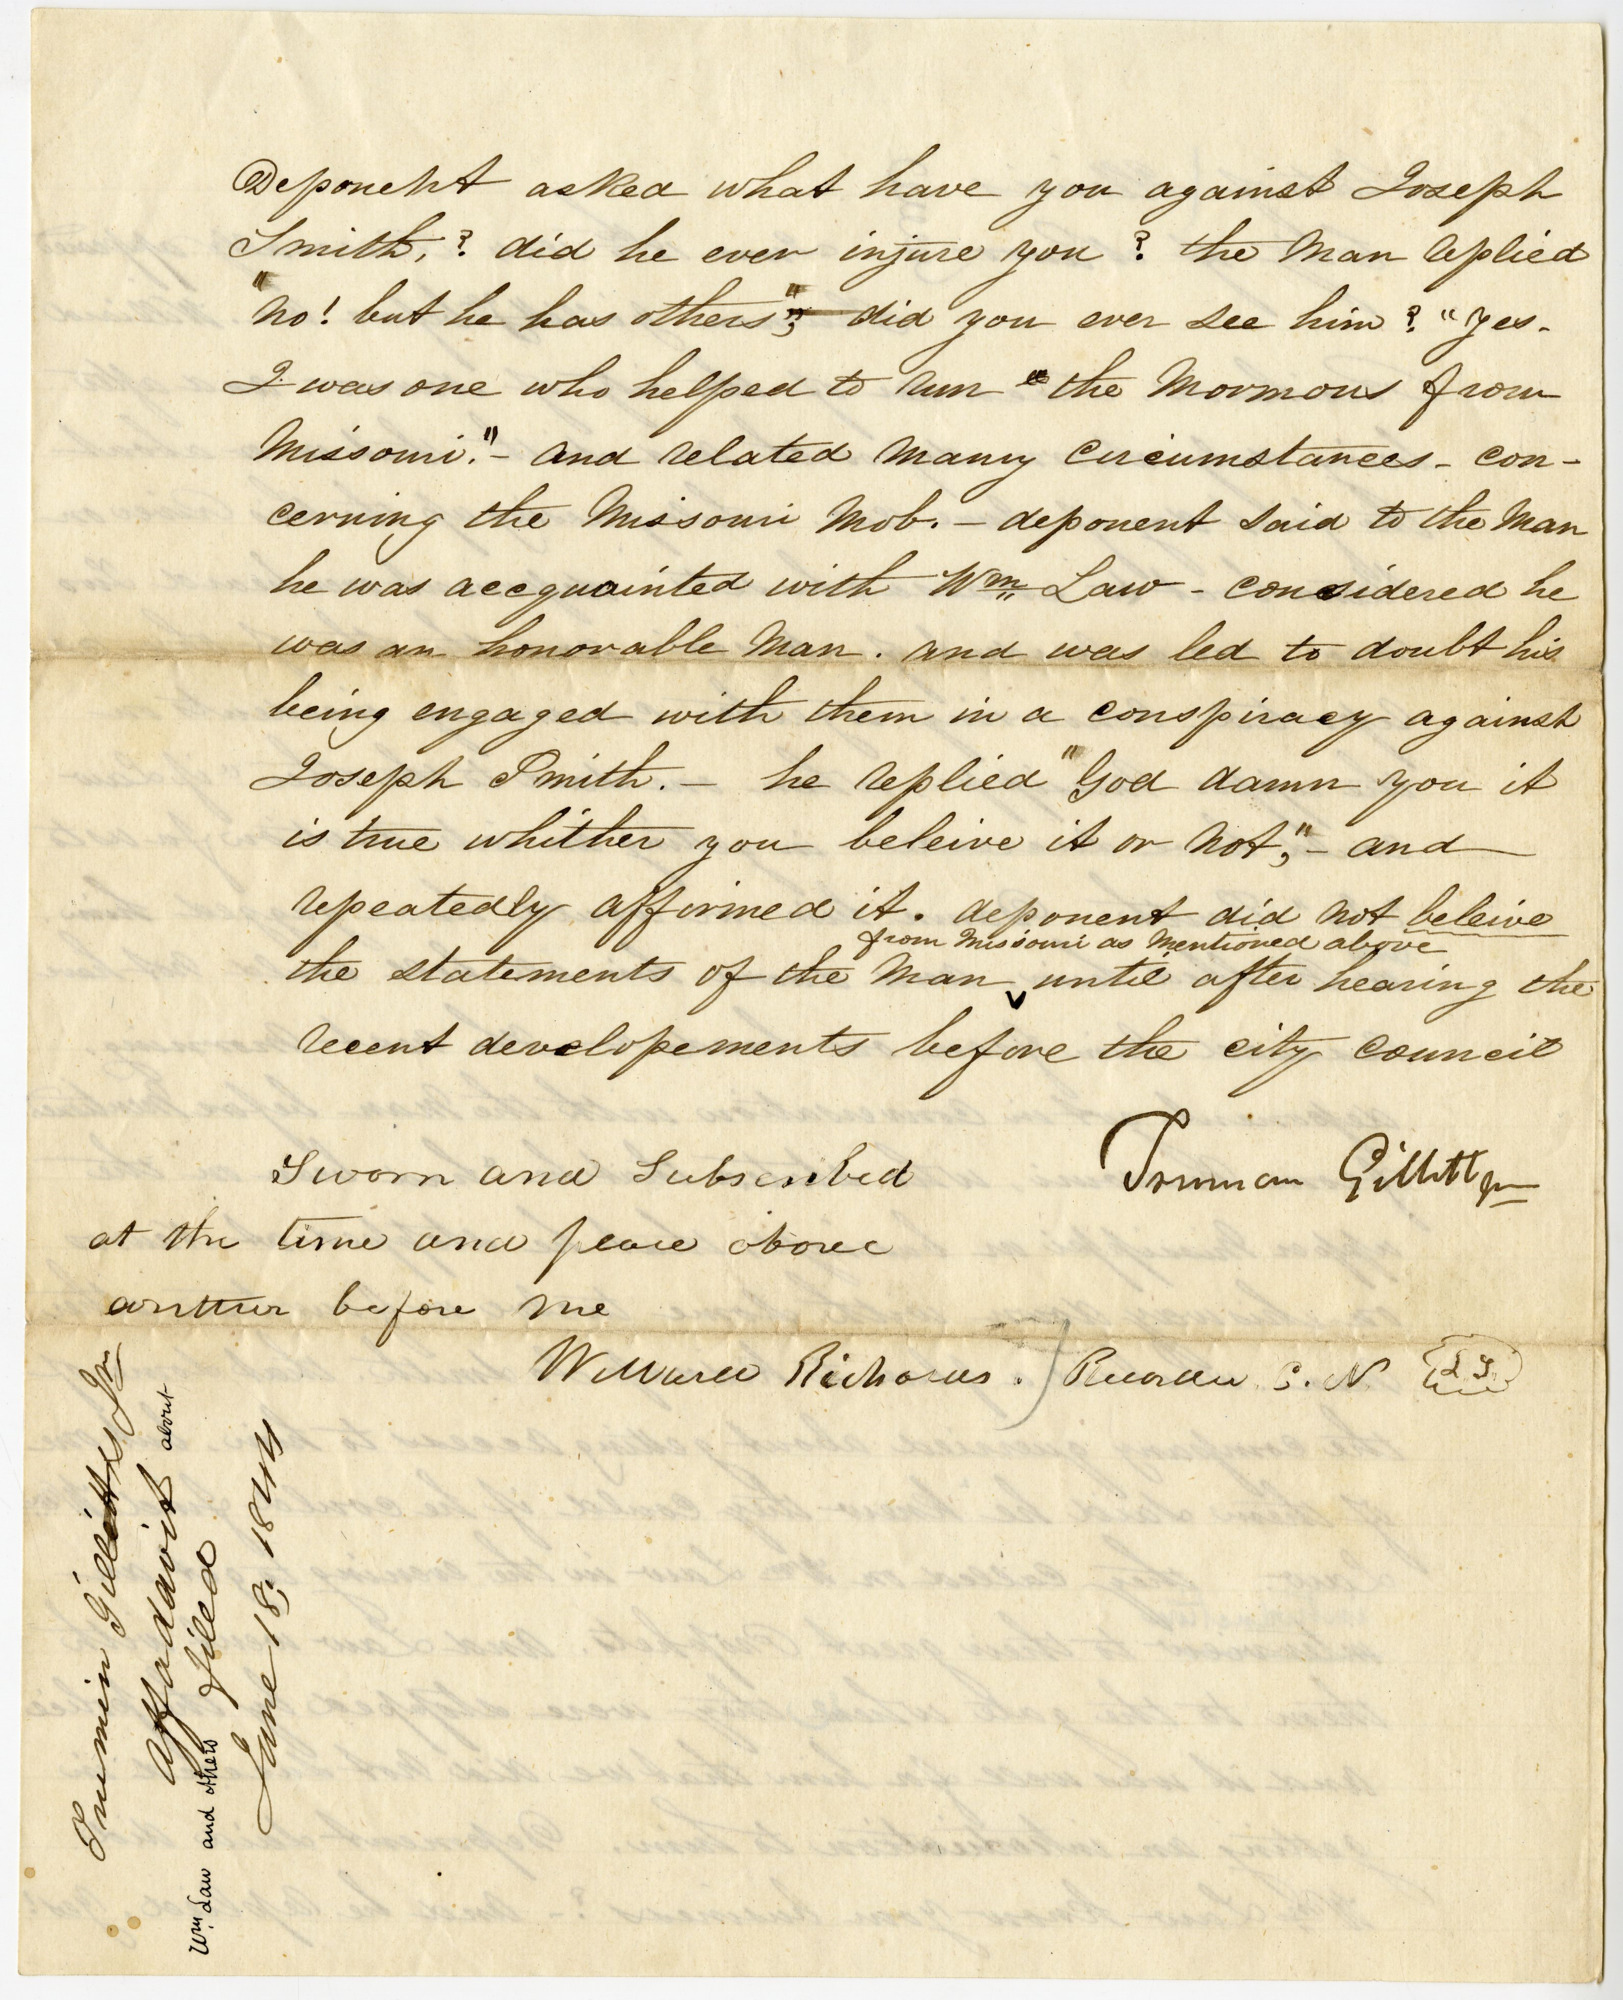 Deponent asked what have you against Joseph
Smith,? did he ever injure you? the man replied
"no! but he has others"; did you ever see him? "yes-
I was one who helped to run the Mormons from
Missouri."- and related many circumstances- con-
cerning the Missouri mob.- deponent said to the man
he was accquainted with Wm. Law- considered he
was an honorable man. and was led to doubt his
being engaged with them in a conspiracy against
Joseph Smith.- he replied "God damn you it
is true whither you beleive it or not,"- and
repeatedly affirmed it. deponent did not beleive
from Missouri as mentioned above
the statements of the man until after hearing the
recent developements before the city council
Truman Gillett Jr
Sworn and Subscribed
at the time and place above
written before me
Willard Richards. Recorder. C. N. LS
Trumin Gilletts Jr
affadavit about
Wm. Law and others
filed
June 18; 1844